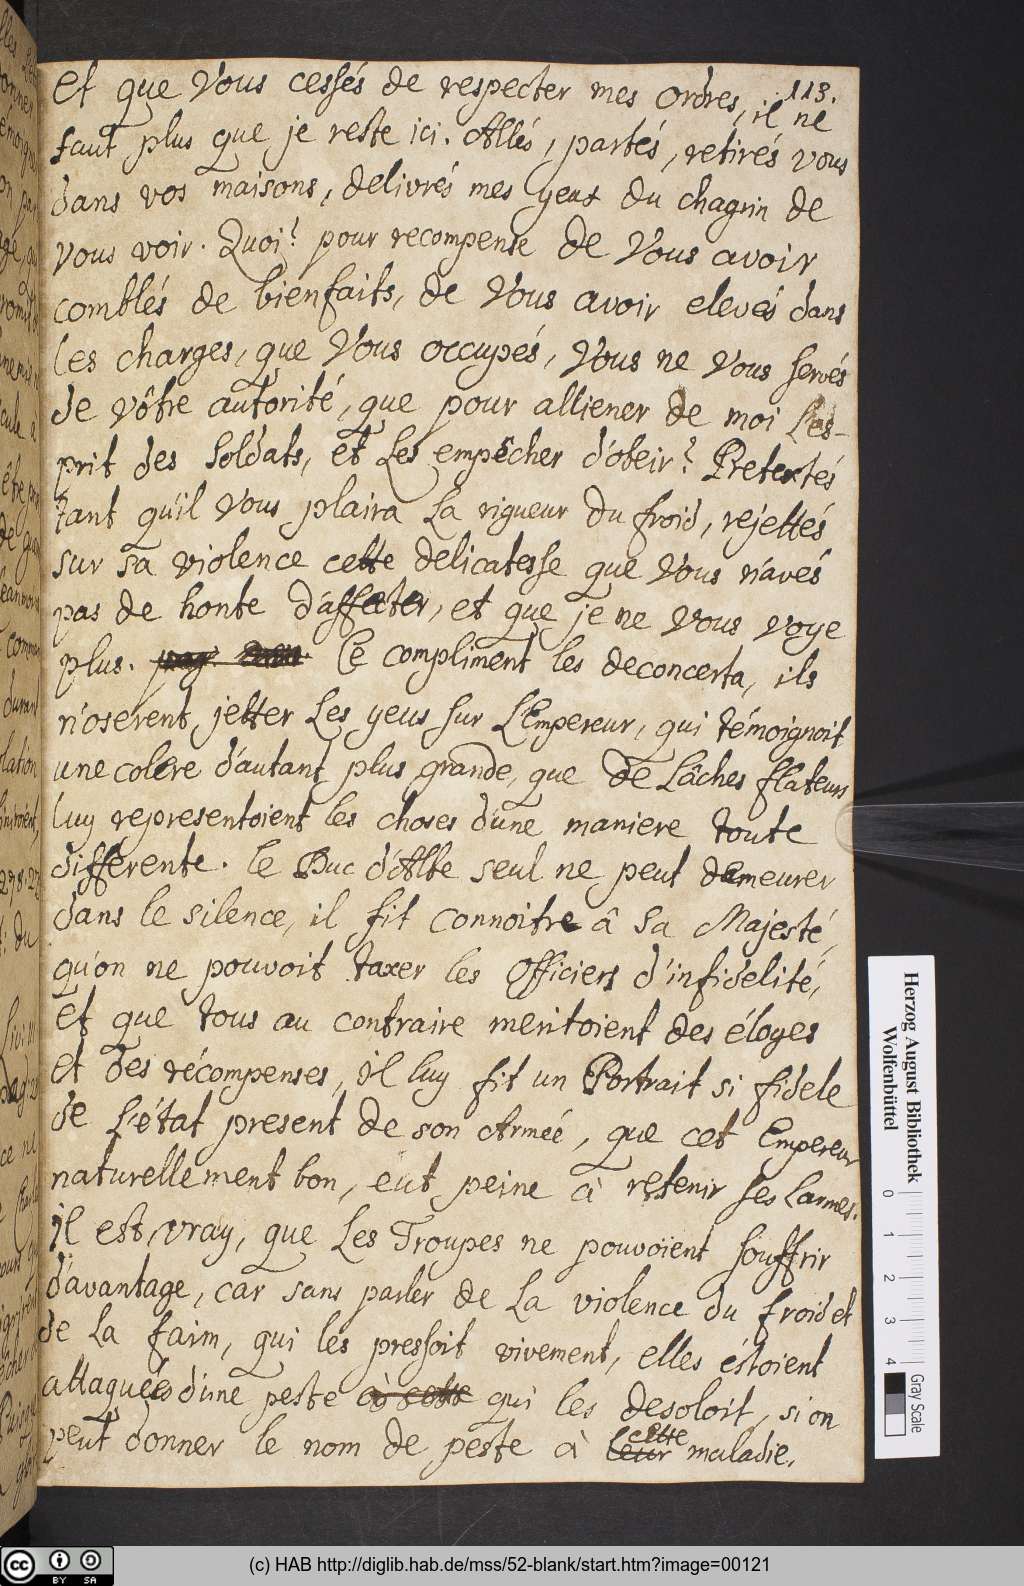 113.
Et que Vous cessés de respecter mes Ordres, il ne
faut plus que je reste ici. Allés, partés, retirés vous
dans vos maisons, delivrés mes yeux du chagrin de
vous voir. Quoi? pour recompense de Vous avoir
comblés de bienfaits, de Vous avoir elevés dans
les charges, que Vous occupés, Vous ne Vous servés
de vôtre autorité, que pour alliener de moi l'es-
prit des Soldats, et les empêcher d'obeir? Pretextés
tant qu'il Vous plaira la rigueur du froid, rejettés
sur sa violence cette delicatesse que Vous n'avés
pas de honte d'affecter, et que je ne Vous voye
plus. Ce compliment les deconcerta, ils
n'oserent jetter les yeus sur l'Empereur, qui témoignoit
une colere d'autant plus grande, que de lâches flateurs
luy representoient les choses d'une maniere toute
differente. le Duc d'Albe seul ne peut demeurer
dans le silence, il fit connoitre â Sa Majesté,
qu'on ne pouvoit taxer les Officiers d'infidelité,
et que tous au contraire meritoient des éloges
et des récompenses, il luy fit un Portrait si fidele
de l'état present de son Armée, que cet Empereur
naturellement bon, eut peine à retenir ses larmes.
il est vray, que les Troupes ne pouvoient souffrir
d'avantage, car sans parler de la violence du froid et
de la faim, qui les pressoit vivement, elles éstoient
attaquées d'une peste à cette qui les desoloit, si on
peut donner le nom de peste à leur cette maladie.
Herzog August Bibliothek
Wolfenbüttel
0 1 2 3 4
Gray Scale
CC BY SA
(c) HAB http://diglib.hab.de/mss/52-blank/start.htm?image=00121